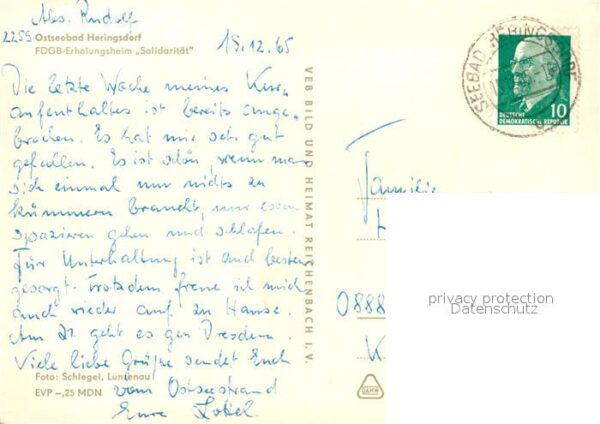 Abs. Rudolf
2255 Ostseebad Heringsdorf
FDGB-Erholungsheim „Solidarität"
15.12.65
Die letzte Woche meines Kur-
aufenthaltes ist bereits ange-
brochen. Es hat mir sehr gut
gefallen. Es ist schön, wenn man
sich einmal um nichts zu
kümmern braucht, nur essen
spazieren gehen und schlafen.
Für Unterhaltung ist auch bestens
gesorgt. Trotzdem freue ich mich
auch wieder auf zu Hause.
Am 21. geht es gen Dresden.
Viele liebe Grüße sendet Euch
vom Ostseestrand
Eure
Foto: Schlegel, Lunzenau
EVP –,25 MDN
VEB BILD UND HEIMAT REICHENBACH I. V.
SEEBAD HERINGSDORF
10
DEUTSCHE
DEMOKRATISCHE REPUBLIK
Familie
0888
K
privacy protection
Datenschutz